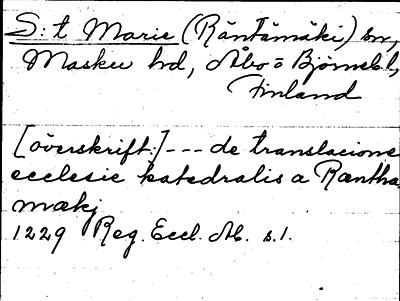 S:t Marie (Räntämäki) sn,
Masku hd, Åbo o Björneb. l,
Finland
[överskrift:] --- de translacione
ecclesie katedralis a Ræntha
mækj
1229 Reg. Eccl. Ab. s. 1.